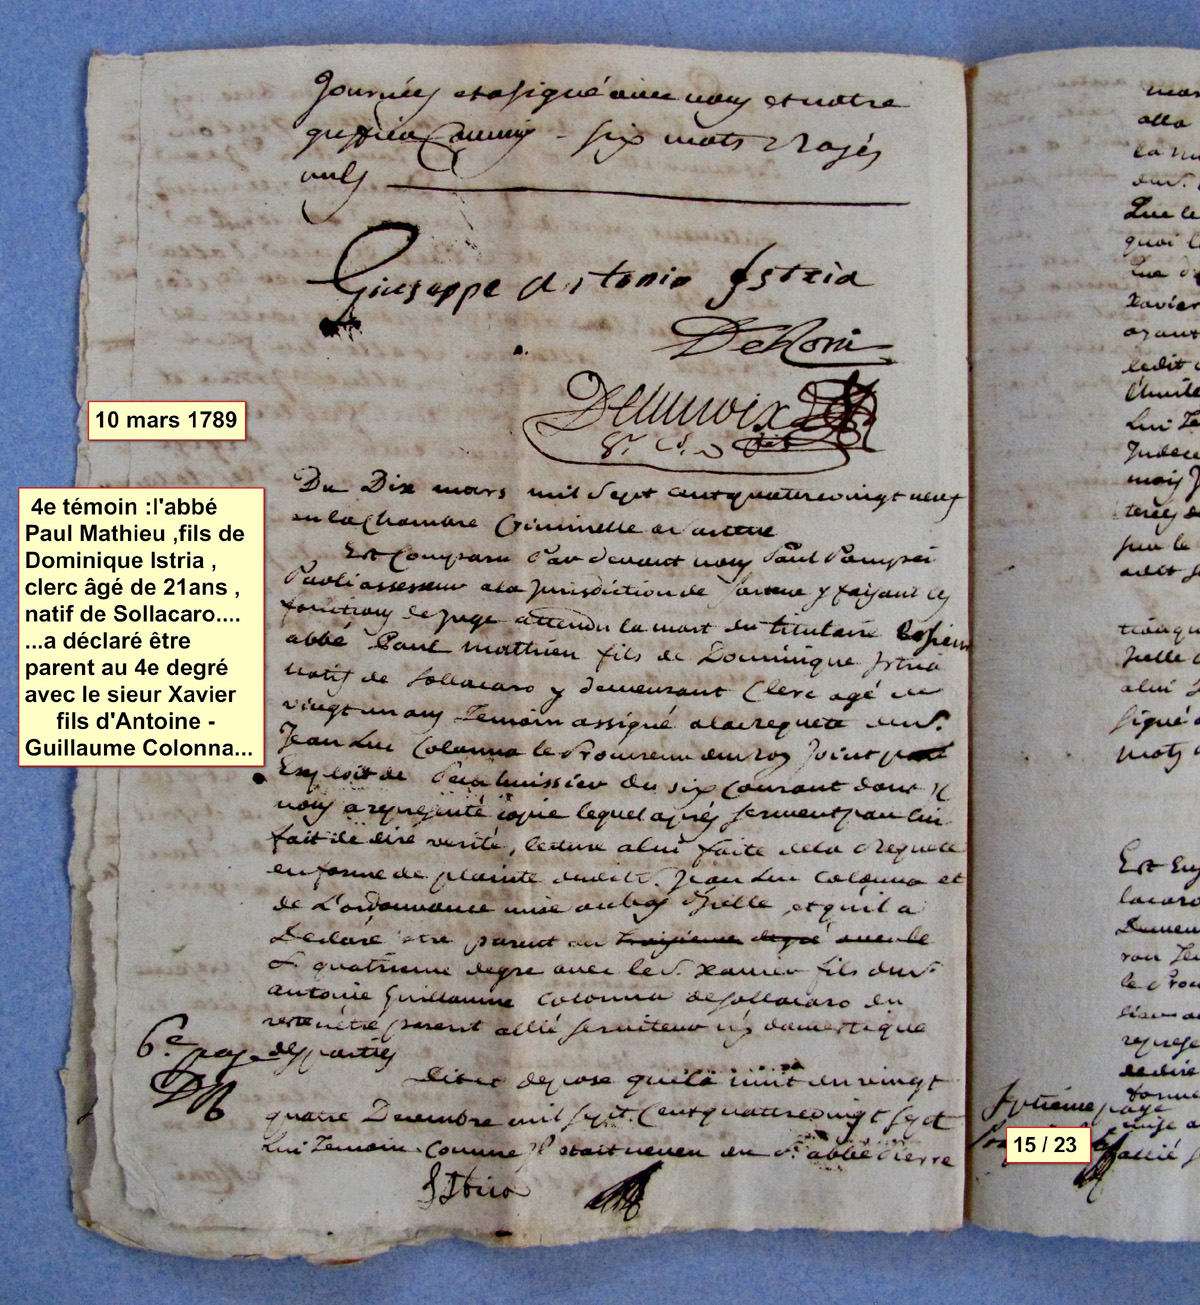 Journées et a signé avec nous et notre
greffier Commis - six mots rayés
nuls
Giuseppe Antonio Istria
DeRoni
Delacroix
10 mars 1789
4e témoin :l'abbé
Paul Mathieu ,fils de
Dominique Istria ,
clerc âgé de 21ans ,
natif de Sollacaro....
...a déclaré être
parent au 4e degré
avec le sieur Xavier
fils d'Antoine -
Guillaume Colonna...
Du Dix mars mil sept cent quatre vingt neuf
en la Chambre Criminelle a Sartene
Est Comparu Par devant nous Paul Pompei
Paoli assesseur a la Jurisdiction de Sartene y faisant les
fonctions de Juge attendu la mort du titulaire le sieur
abbé Paul Mathieu fils de Dominique Istria
natif de Sollacaro y demeurant Clerc agé de
vingt un ans Temoin assigné a la requete du S.r
Jean Luc Colonna le Procureur du roy Joint par
Exploit de huissier du six Courant dont il
nous a representé copie lequel aprés serment par lui
fait de dire verité, lecture a lui faite de la Requete
en forme de plainte dudit S. Jean Luc Colonna et
de L'ordonnance mise au bas d'Icelle, et qu'il a
Declaré etre parent au troisieme degré
quatrieme degre avec le S. Xavier fils du S.r
antoine Guillaume Colonna de Sollacaro
etre parent allié serviteur ny domestique
6.e page des parties
Dit et depose que la nuit du vingt
quatre Decembre mil sept Cent quatre vingt sept
lui Temoin Comme Il etait neveu du S.r abbé Pierre
Istria
mar
alla
Que le
quoi l
Xavier
ayant
ledit
lui Te
mais J
sur le
alui
signé
mots
Est
lacaro
Demeu
le Proc
represe
de dire
forme
Septieme page
15 / 23